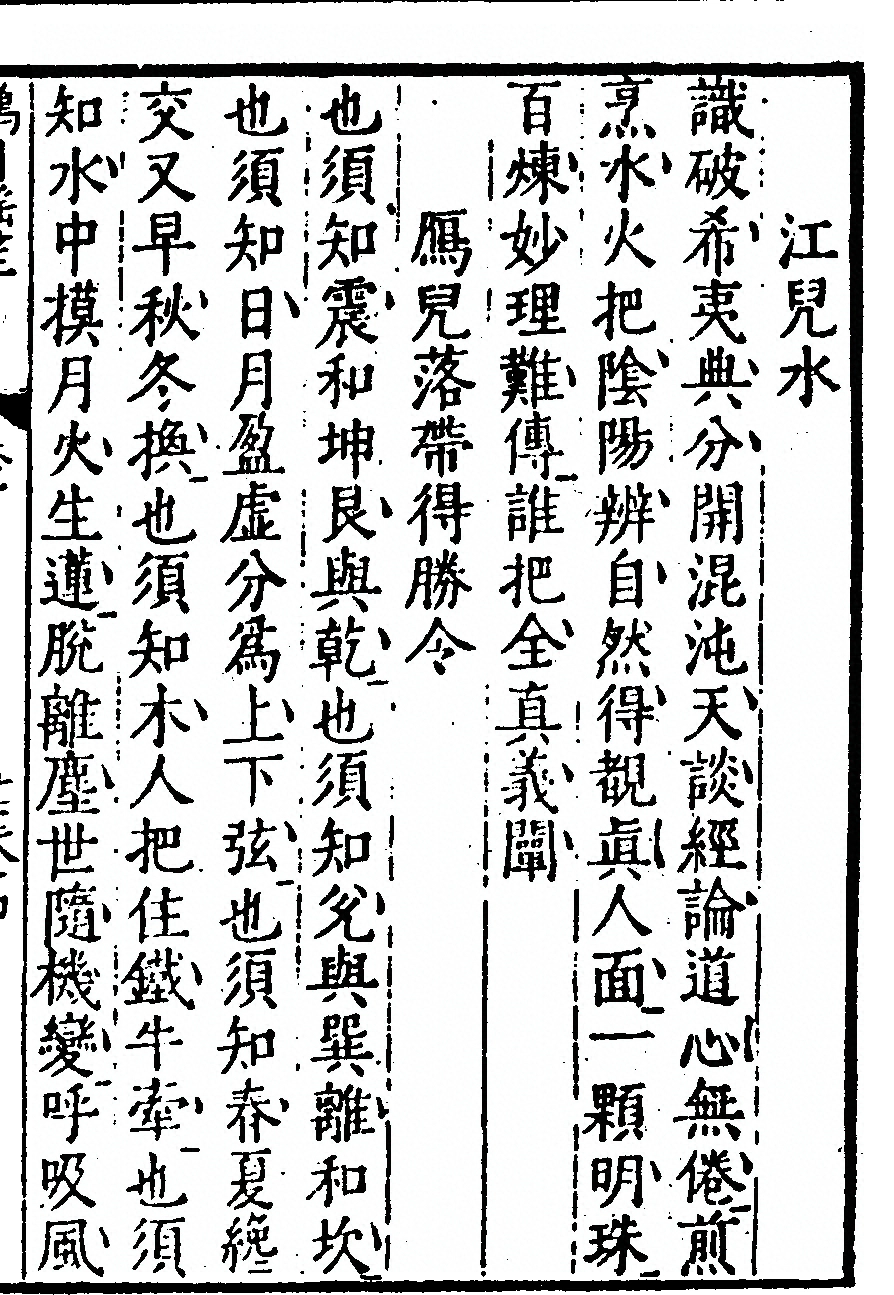 江兒水
識破希夷典分開混沌天談經論道心無倦煎
烹水火把陰陽辨自然得覩眞人面一顆明珠
百煉妙理難傳誰把全真義闡
鴈兒落帶得勝令
也須知震和坤艮與乾也須知兊與巽離和坎
也須知日月盈虛分爲上下弦也須知春夏纔
交又早秋冬換也須知木人把住鐵牛牽也須
知水中摸月火生蓮脫離塵世隨機變呼吸風